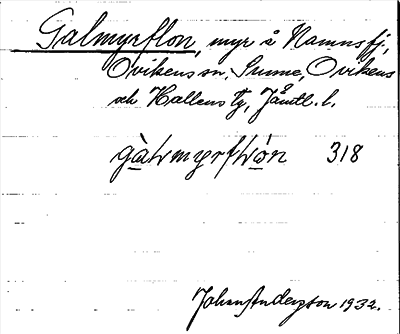 Galmyrflon, myr å Hamnsfj.,
Ovikens sn, Sunne, Ovikens
och Hallens tg, Jämtl. l.
318
Johan Anderzson 1932.